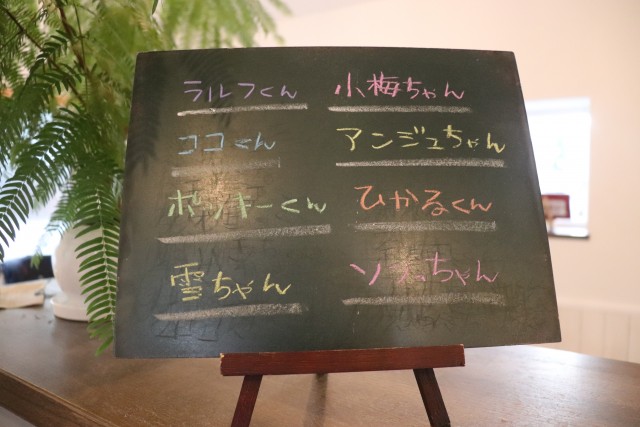 ラルフくん
小梅ちゃん
ココくん
アンジュちゃん
ポッキーくん
ひかるくん
雪ちゃん